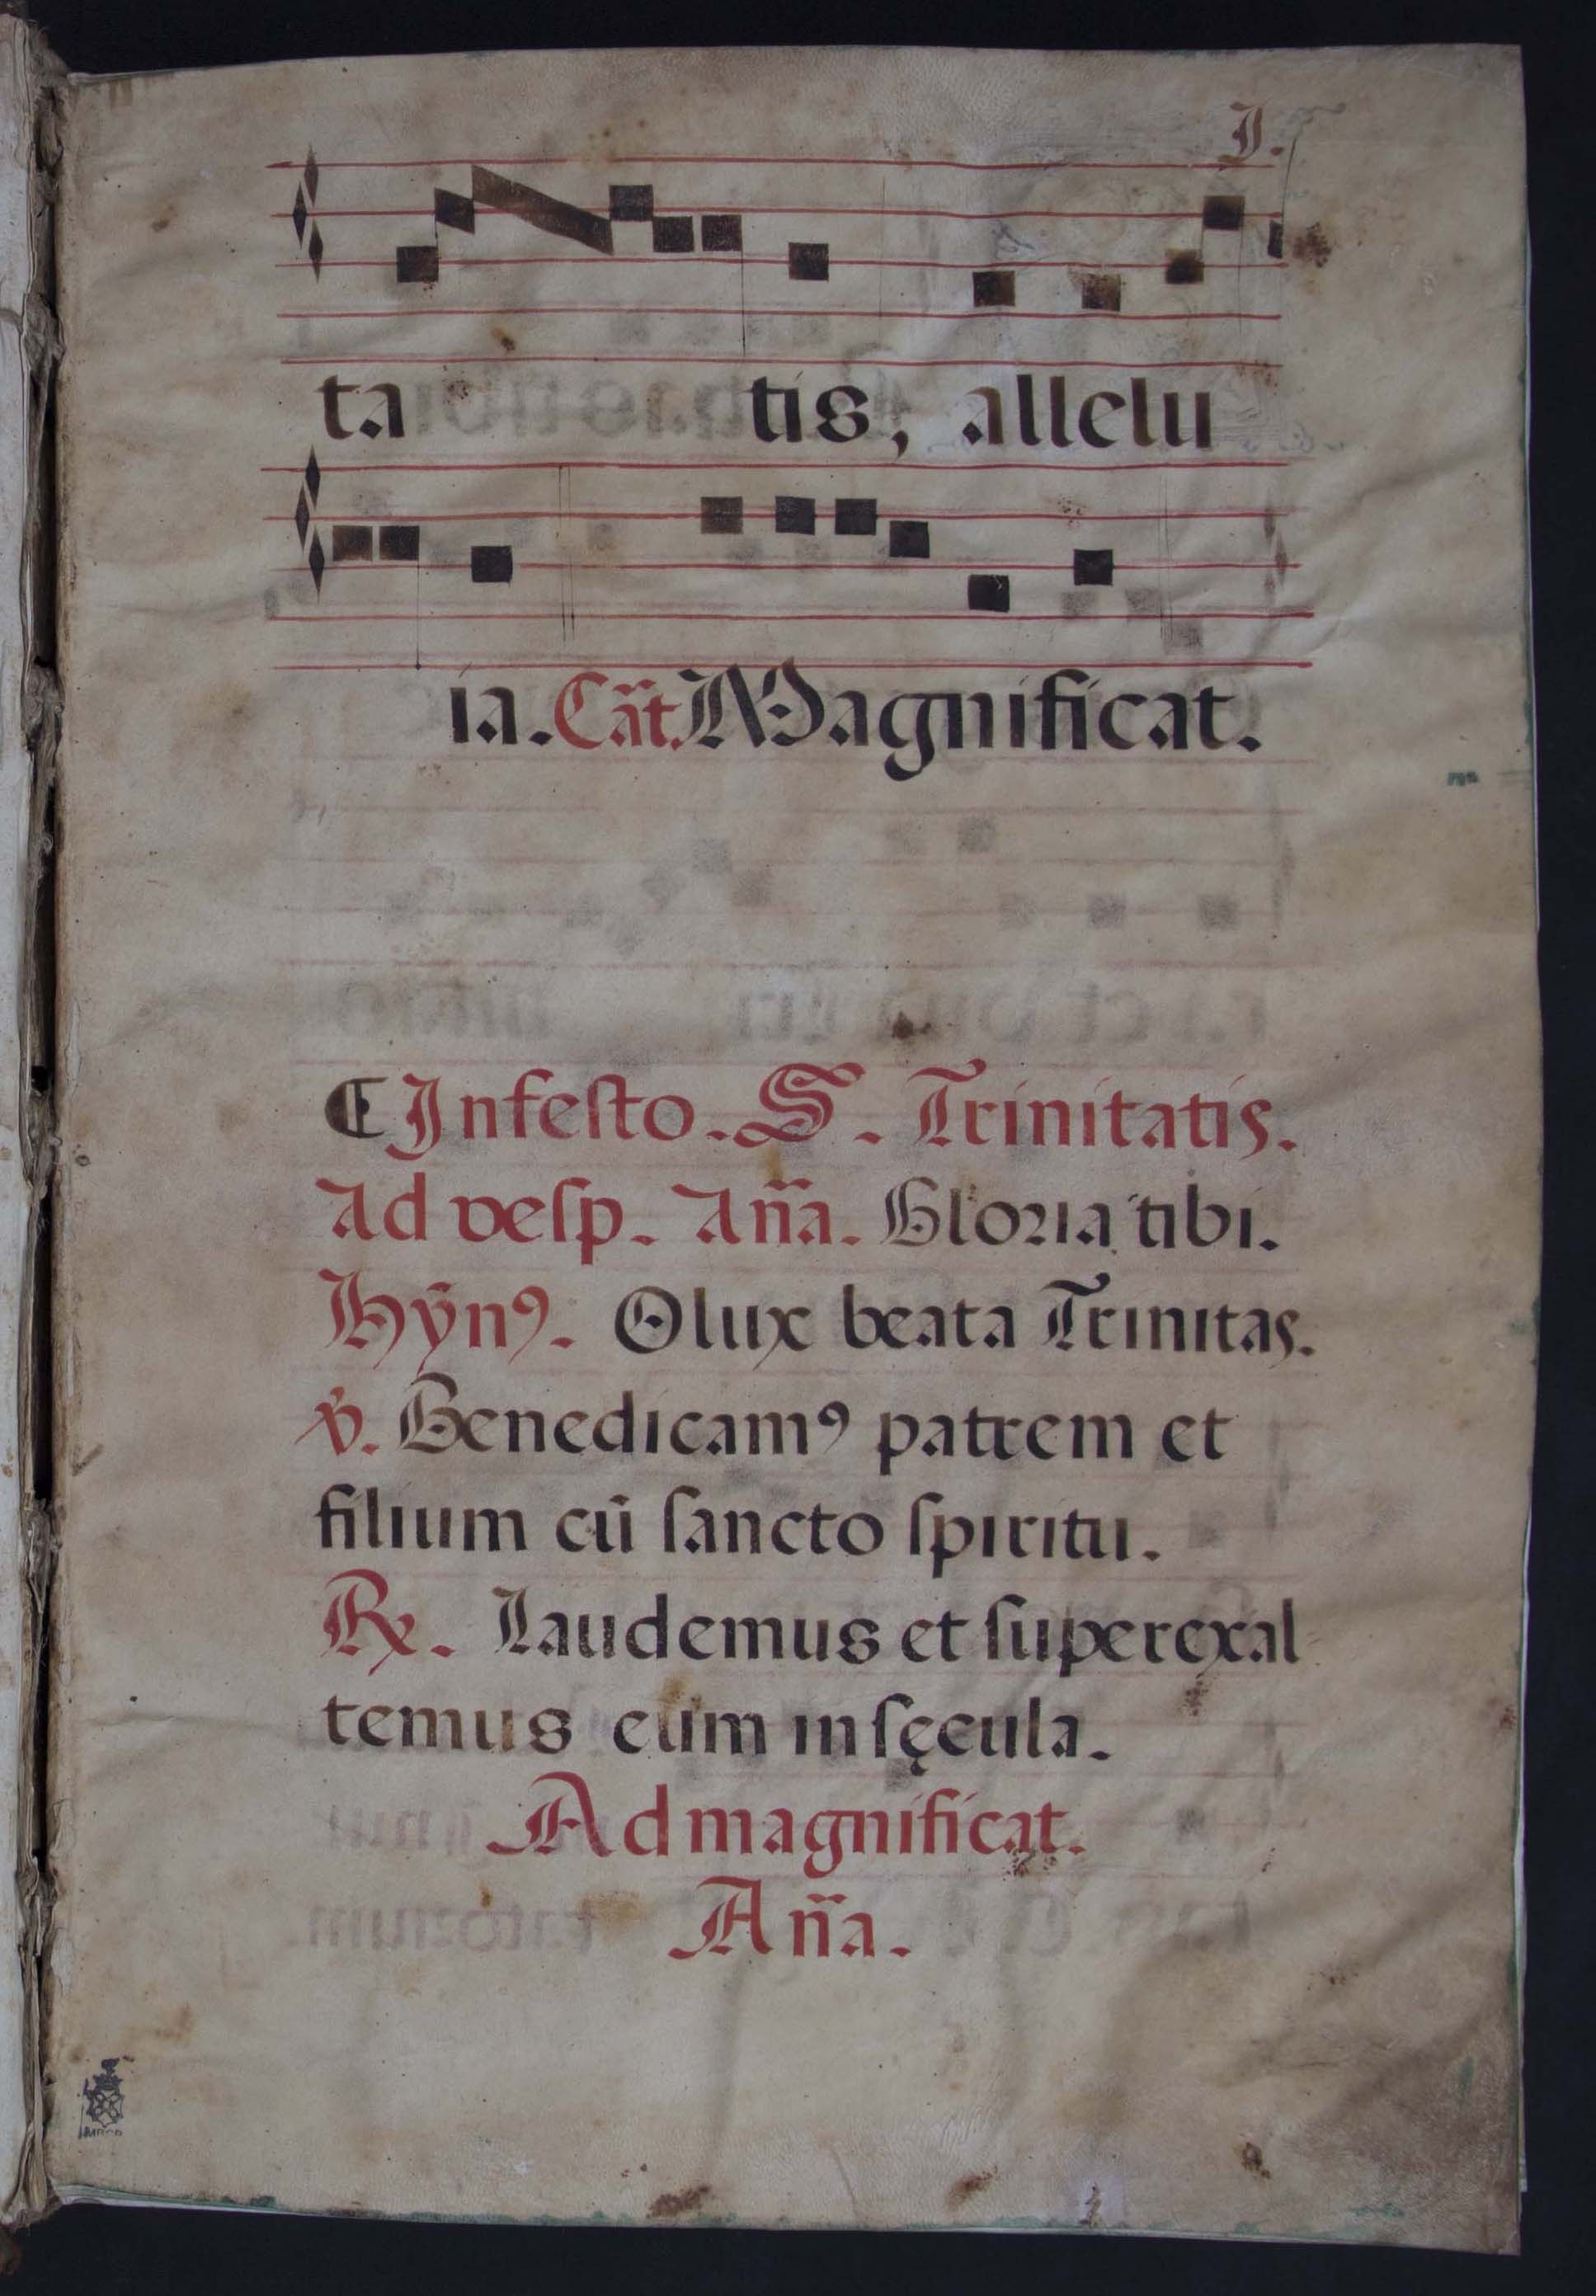 I.
ta tis, allelu
ia. Cãt. Magnificat.
¶ Infesto. S. Trinitatis.
Ad vesp. Añа. Gloria tibi.
Hỹnꝯ. O lux beata Trinitas.
℣. Benedicamꝯ patrem et
filium cū sancto spiritu.
℞. Laudemus et superexal
temus eum in sęcula.
Ad magnificat.
Aña.